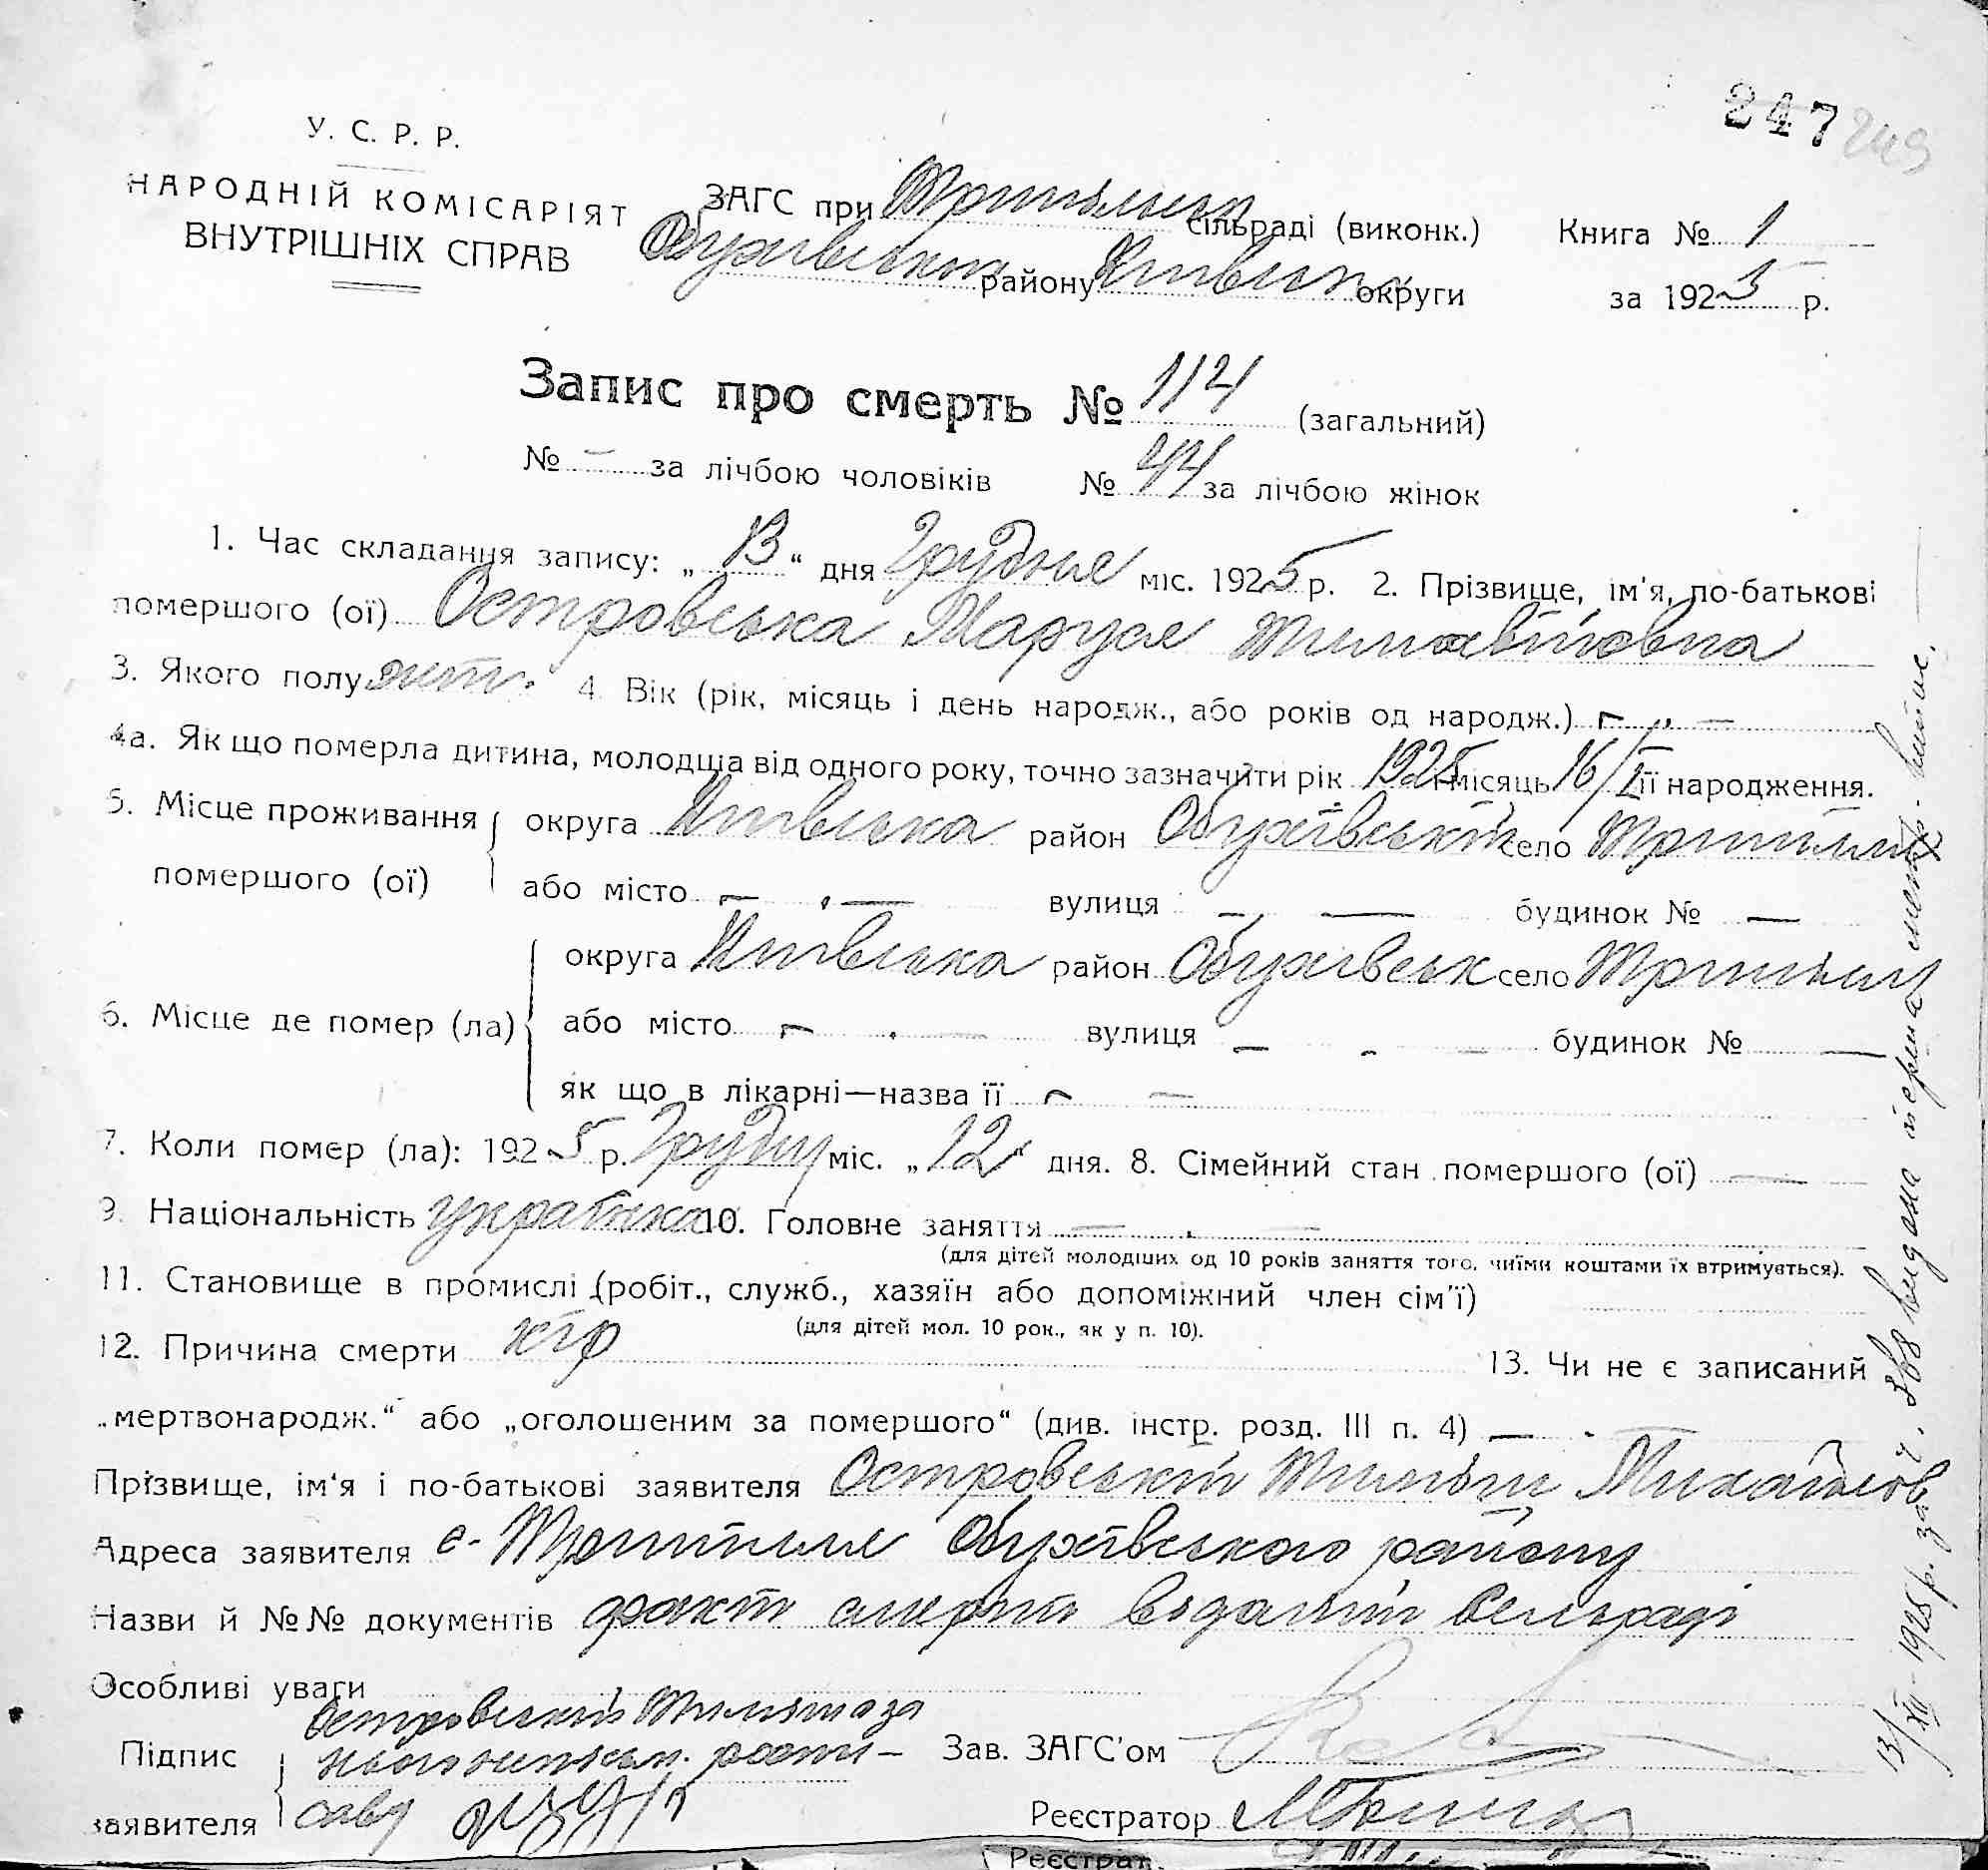 247 249
У. С. Р. Р.
НАРОДНІЙ КОМІСАРІЯТ
ВНУТРІШНІХ СПРАВ
ЗАГС при Трипільськ сільраді (виконк.)
Обухівськ району Київськ округи
Книга № 1
за 1925 р.
Запис про смерть № 114 (загальний)
№ – за лічбою чоловіків № 44 за лічбою жінок
1. Час складання запису: „13“ дня Грудня міс. 1925 р. 2. Прізвище, ім'я, по-батькові
помершого (ої) Островська Маруся
3. Якого полу 4. Вік (рік, місяць і день народж., або років од народж.) – „ –
4а. Як що померла дитина, молодша від одного року, точно зазначити рік 1925 місяць 16/ її народження.
5. Місце проживання помершого (ої) округа Київська район Обухівський село Трипілля
або місто – „ – вулиця – „ – будинок № –
6. Місце де помер (ла) округа Київська район Обухівськ село Трипілля
або місто – „ – вулиця – „ – будинок № –
як що в лікарні—назва її – –
7. Коли помер (ла): 1925 р. Грудня міс. „12“ дня. 8. Сімейний стан помершого (ої) –
9. Національність українка 10. Головне заняття – „ –
(для дітей молодших од 10 років заняття того, чиїми коштами їх втримується).
11. Становище в промислі (робіт., служб., хазяїн або допоміжний член сім'ї)
(для дітей мол. 10 рок., як у п. 10).
12. Причина смерти кір 13. Чи не є записаний
„мертвонародж.“ або „оголошеним за помершого“ (див. інстр. розд. III п. 4) – „
Прізвище, ім'я і по-батькові заявителя Островський Михайлов
Адреса заявителя с. Трипілля Обухівського району
Назви й №№ документів факт смерти сельраді
Особливі уваги
Підпис заявителя Островський за
нього
Зав. ЗАГС'ом
Реєстратор
13/XII-1925 р. за ч. 368 видана
Реєстрат.